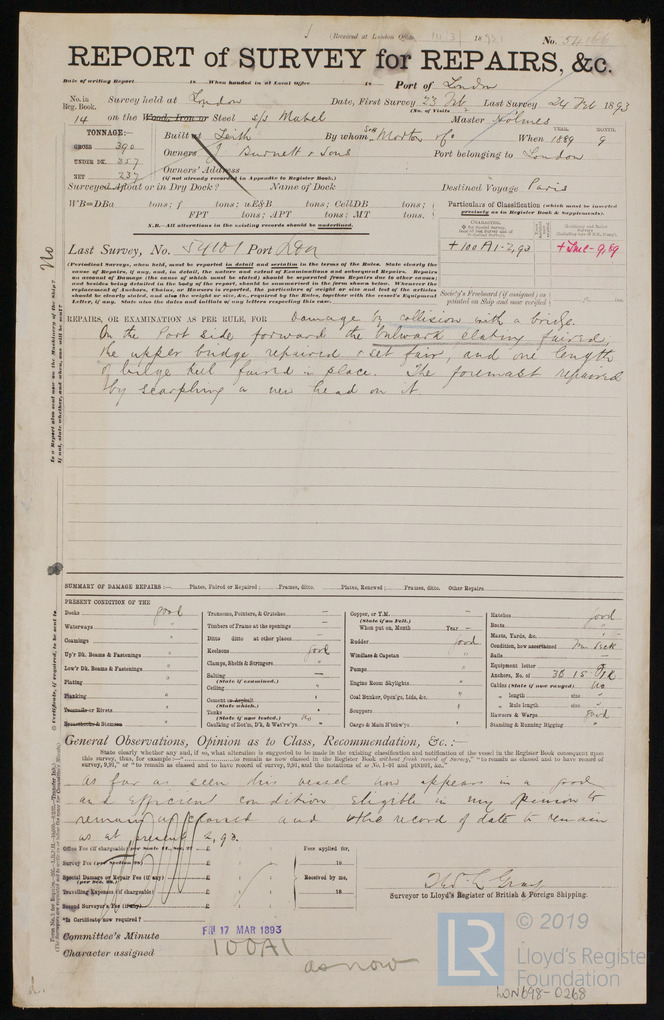 (Received at London Office 18
No. 54166
REPORT of SURVEY for REPAIRS, &c.
Date of writing Report 18 When handed in at Local Office 18 Port of London
No. in Reg. Book. Survey held at London Date, First Survey 23 Feb Last Survey 24 Feb 1893
(No. of Visits
14 on the Wood, Iron or Steel s/s Mabel Master Holmes
TONNAGE: Built at Leith By whom S&H Morton & Co When 1889 YEAR. MONTH. 9
GROSS 390
Owners J Burnett & Sons Port belonging to London
UNDER DK. 357
NET 237
Owners' Address
(if not already recorded in Appendix to Register Book.)
Surveyed Afloat or in Dry Dock? Name of Dock Destined Voyage Paris
WB=DBa tons; f tons; uE&B tons; CellDB tons;
FPT tons; APT tons; MT tons.
N.B.—All alterations in the existing records should be underlined.
Particulars of Classification (which must be inserted
precisely as in Register Book & Supplements).
CHARACTER.
+100A1-2,93
+LMC-9,89
Last Survey, No. 54101 Port Lon
(Periodical Surveys, when held, must be reported in detail and seriatim in the terms of the Rules. State clearly the
cause of Repairs, if any, and, in detail, the nature and extent of Examinations and subsequent Repairs. Repairs
on account of Damage (the cause of which must be stated) should be separated from Repairs due to other causes;
and besides being detailed in the body of the report, should be summarised in the form shown below. Whenever the
replacement of Anchors, Chains, or Hawsers is reported, the particulars of weight or size and test of the articles
should be clearly stated, and also the weight or size, &c., required by the Rules, together with the vessel's Equipment
Letter, if any. State also the dates and initials of any letters respecting this case.
Society's Freeboard (if assigned) as
painted on Ship and now verified
REPAIRS, OR EXAMINATION AS PER RULE, FOR Damage by collision with a bridge.
On the Port side forward the bulwark plating faired,
the upper bridge repaired & set fair, and one length
of bilge keel faired in place. The foremast repaired
by scarphing a new head on it.
Is a Report also sent now on the Machinery of the Ship? No
If not, state whether, and when, one will be sent?
SUMMARY OF DAMAGE REPAIRS:— Plates, Faired or Repaired; Frames, ditto. Plates, Renewed; Frames, ditto. Other Repairs
PRESENT CONDITION OF THE
Decks good
Waterways "
Coamings "
Up'r Dk. Beams & Fastenings "
Low'r Dk. Beams & Fastenings "
Plating "
Planking
Treenails or Rivets "
Breasthooks & Stemson "
Transoms, Pointers, & Crutches —
Timbers of Frame at the openings —
Ditto ditto at other places —
Keelsons good
Clamps, Shelfs & Stringers "
Salting —
(State if examined.)
Ceiling "
Cement or Asphalt "
(State which.)
Tanks
(State if now tested.) No
Caulking of Bot'm, D'k, & Wat'rw'ys "
Copper, or Y.M. —
(State if on Felt.)
When put on, Month Year —
Rudder good
Windlass & Capstan "
Pumps "
Engine Room Skylights "
Coal Bunker, Open'gs, Lids, &c. "
Scuppers "
Cargo & Main H'tchw'ys "
Hatches good
Boats "
Masts, Yards, &c. "
Condition, how ascertained
Sails —
Equipment letter
Anchors, No. of 3B 1S
Cables (State if now ranged) No
" length size "
" Rule length size
Hawsers & Warps good
Standing & Running Rigging "
General Observations, Opinion as to Class, Recommendation, &c.:—
State clearly whether any and, if so, what alteration is suggested to be made in the existing classification and notification of the vessel in the Register Book consequent upon
this survey, thus, for example:—" to remain as now classed in the Register Book without fresh record of Survey," "to remain as classed and to have record of
survey, 9,91," or "to remain as classed and to have record of survey, 9,91, and the notations of ss No.1-91 and ptNB91, &c."
As far as seen this vessel now appears in a good
and efficient condition eligible in my opinion to
remain as classed and the record of date to remain
as at present 2,93.
Office Fee (if chargeable) £
Survey Fee £
Special Damage or Repair Fee (if any) £
Travelling Expenses (if chargeable) £
Second Surveyor's Fee (if any) £
Fees applied for,
18
Received by me,
18
*Is Certificate now required?
Thos L Gray
Surveyor to Lloyd's Register of British & Foreign Shipping.
Committee's Minute FRI 17 MAR 1893
Character assigned 100A1
as now
© 2019
LR
Lloyd's Register
Foundation
LON698-0268